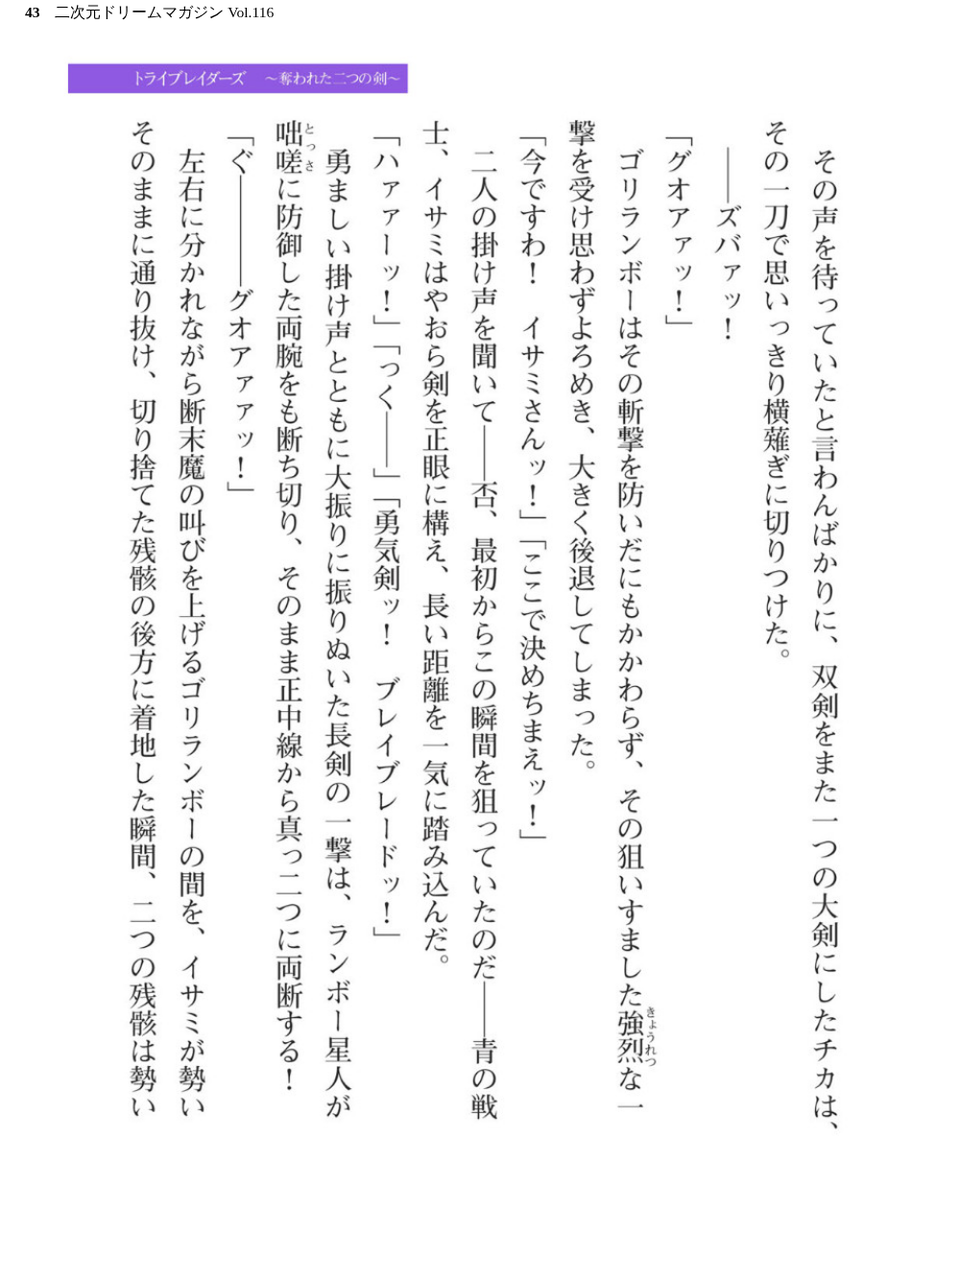 43 二次元ドリームマガジン Vol.116
トライブレイダーズ ～奪われた二つの剣～
その声を待っていたと言わんばかりに、双剣をまた一つの大剣にしたチカは、
その一刀で思いっきり横薙ぎに切りつけた。
――ズバァッ！
「グオアァッ！」
ゴリランボーはその斬撃を防いだにもかかわらず、その狙いすました強烈な一
撃を受け思わずよろめき、大きく後退してしまった。
「今ですわ！　イサミさんッ！」「ここで決めちまえッ！」
二人の掛け声を聞いて――否、最初からこの瞬間を狙っていたのだ――青の戦
士、イサミはやおら剣を正眼に構え、長い距離を一気に踏み込んだ。
「ハァァーッ！」「っく――」「勇気剣ッ！　ブレイブレードッ！」
勇ましい掛け声とともに大振りに振りぬいた長剣の一撃は、ランボー星人が
咄嗟に防御した両腕をも断ち切り、そのまま正中線から真っ二つに両断する！
「ぐ――――グオアァァッ！」
左右に分かれながら断末魔の叫びを上げるゴリランボーの間を、イサミが勢い
そのままに通り抜け、切り捨てた残骸の後方に着地した瞬間、二つの残骸は勢い